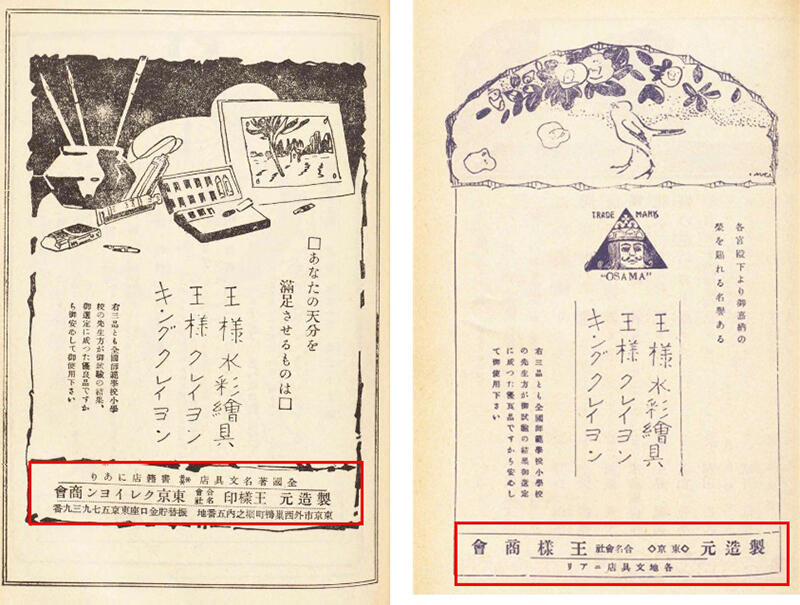 □あなたの天分を
滿足させるものは□
王様水彩繪具
王様クレイヨン
キングクレイヨン
右三品とも全國師範學校小學
校の先生方が御試驗の結果、
御選定に成つた優良品ですか
ら御安心して御使用下さい
全國著名文具店 書籍店にあり
製造元 王樣印 合名會社 東京クレイヨン商會
東京市外西巢鴨町堀之内五番地 振替貯金口座東京五七九三九番
各宮殿下より御嘉納の
榮を賜れる名譽ある
TRADE MARK
"OSAMA"
王様水彩繪具
王様クレイヨン
キングクレイヨン
右三品とも全國師範學校小學校
の先生方が御試驗の結果御選定
に成つた優良品ですから安心し
て御使用下さい
製造元 ◇東京◇ 合名會社 王樣商會
各地文具店ニアリ